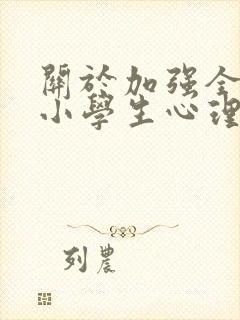 關於加强全
小學生心理
列農